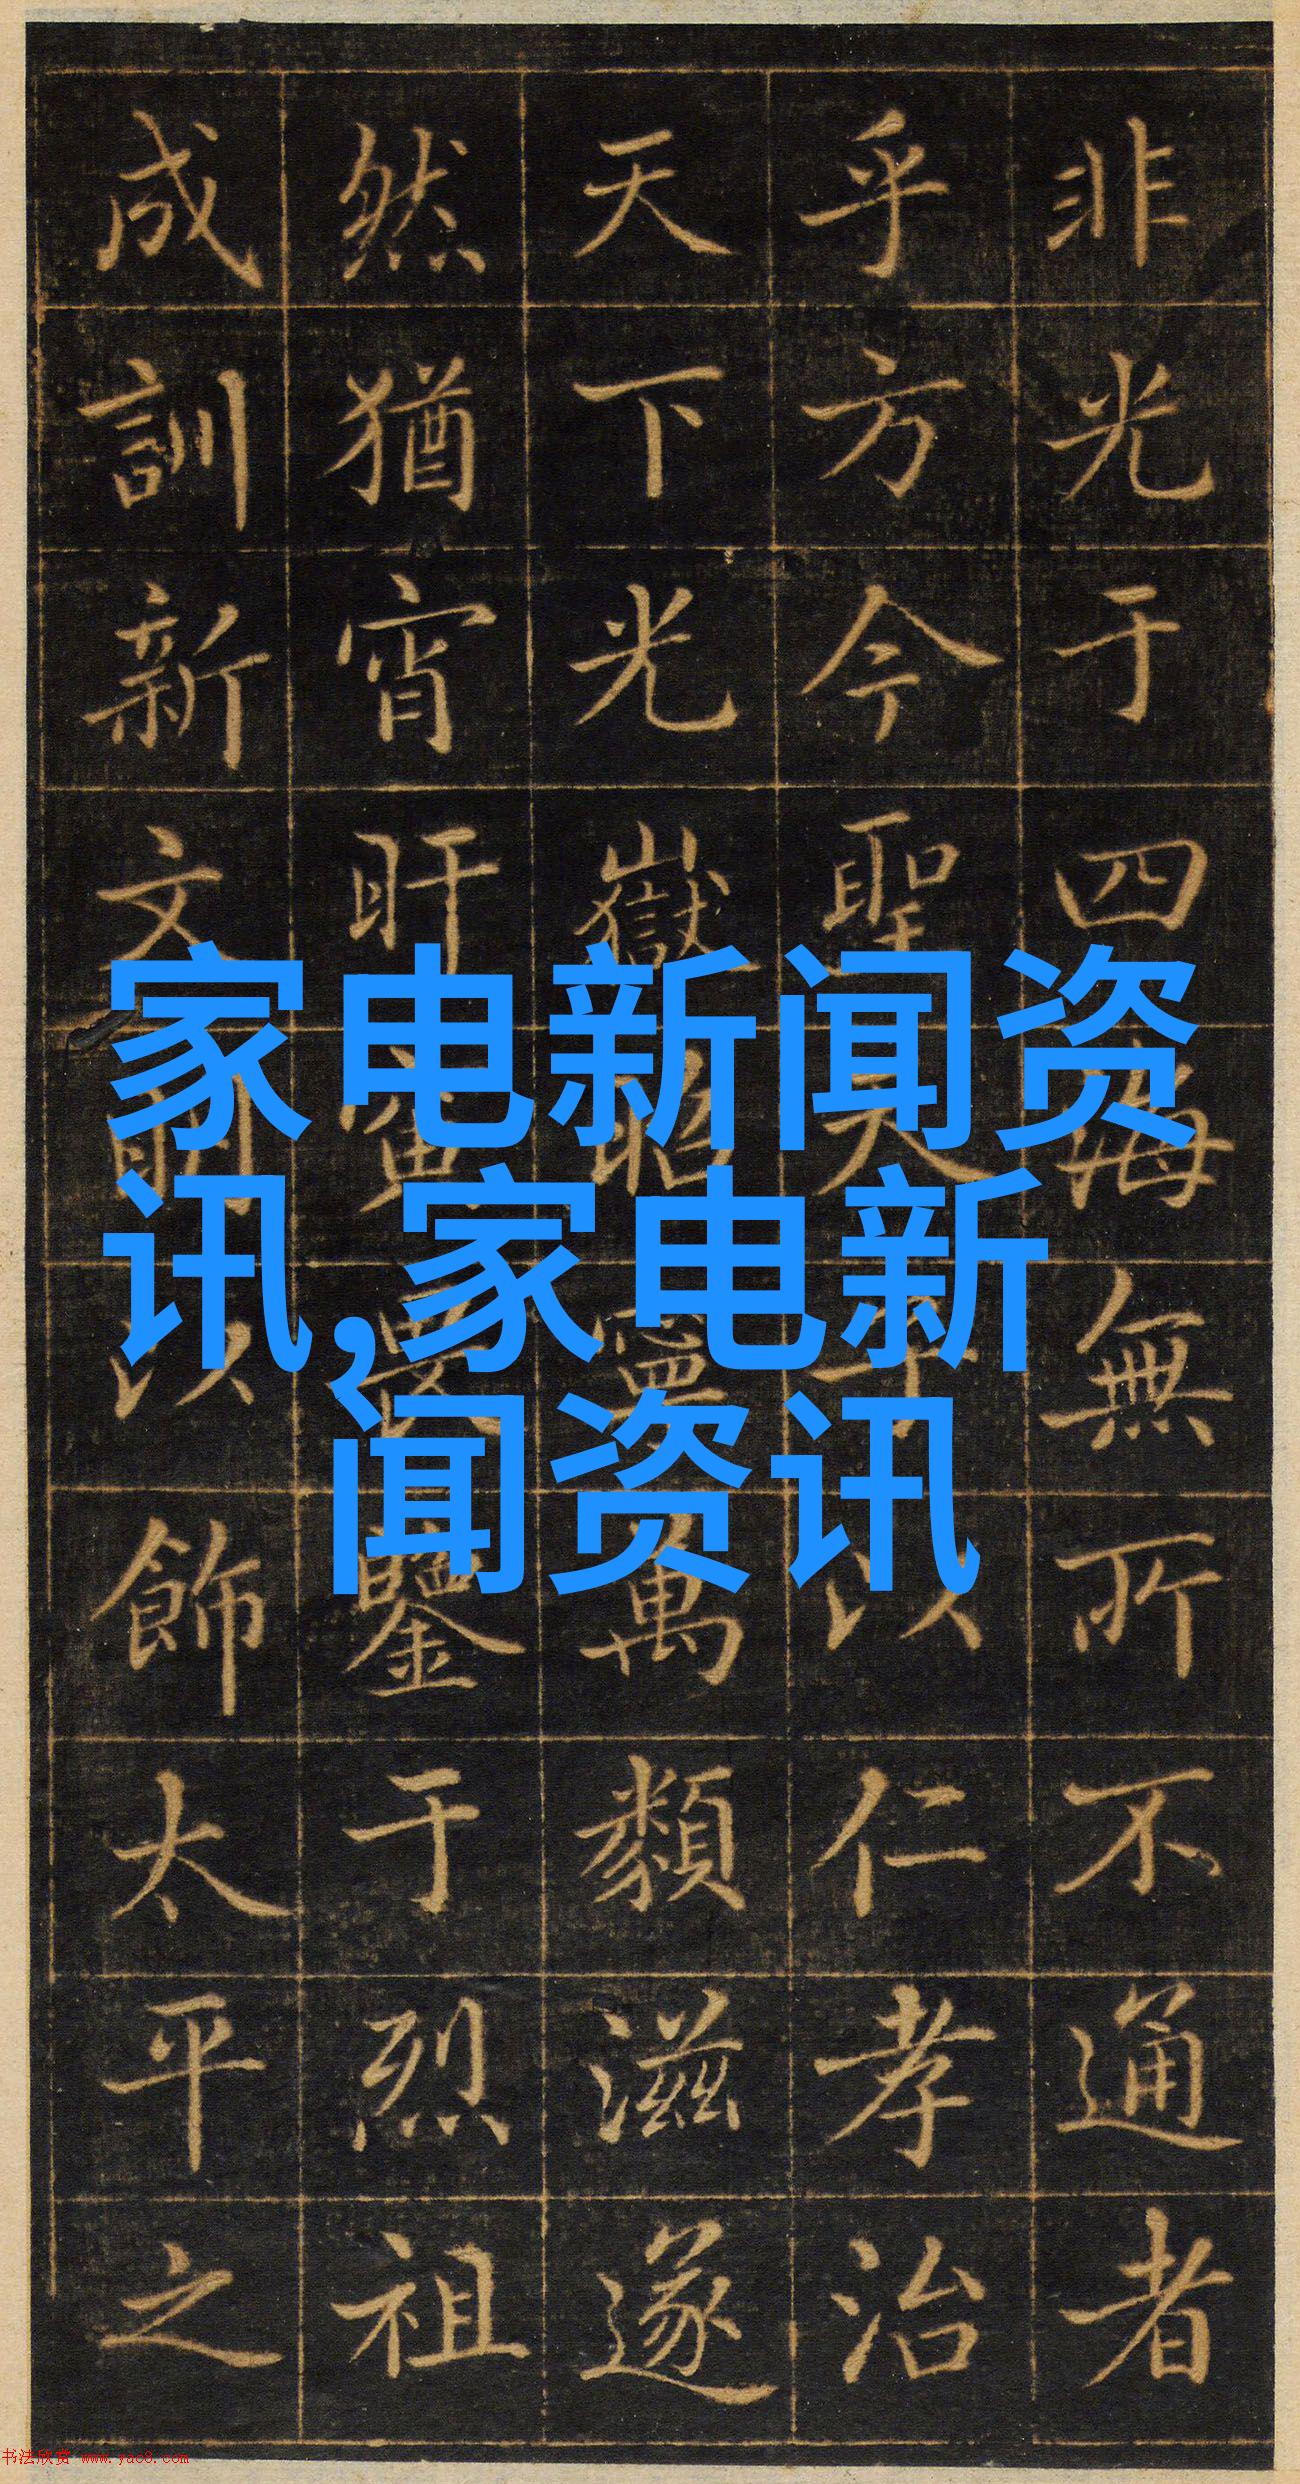 非光于四海無所不通者
乎方今聖天子以仁孝治
天下光嶽昭寧萬類滋遂
然猶宵旰寅畏鑒于烈祖
成訓新文明以飾太平之
家电新闻资
讯,家电新
闻资讯
书法欣赏 www.yac8.com